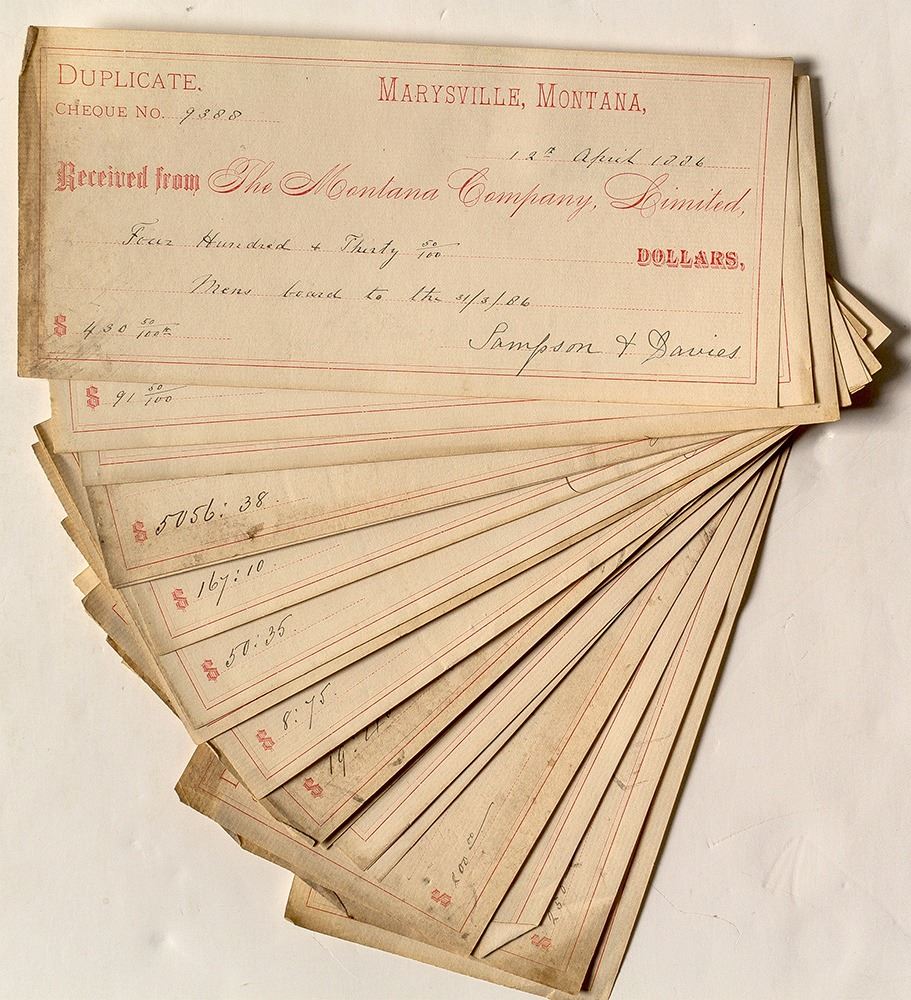 DUPLICATE.
MARYSVILLE, MONTANA,
CHEQUE NO. 9388
12th April 1886
Received from The Montana Company, Limited,
Four Hundred + Thirty 50/100
DOLLARS,
Mens board to the 31/3/86
$ 430 50/100
Sampson & Davies
$ 91 50/100
$ 5056: 38
$ 167: 10
$ 50: 35
$ 8: 75
$ 19:
$
$